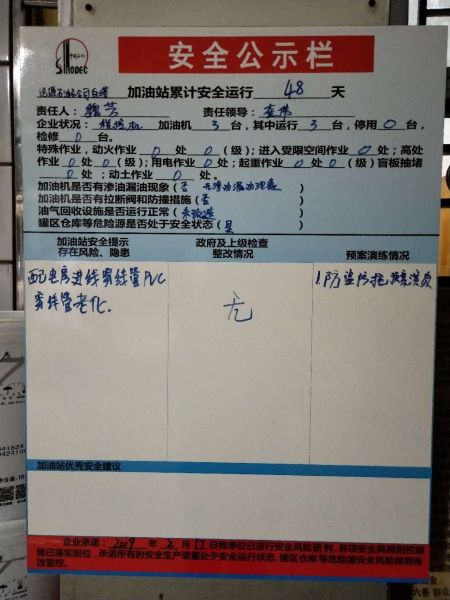 中国石化
SINOPEC
安全公示栏
加油站累计安全运行 48 天
责任人： 责任领导：
企业状况： 加油机 3 台，其中运行 3 台，停用 0 台，
检修 0 台。
特殊作业，动火作业 0 处 0 （级）；进入受限空间作业 0 处；高处
作业 0 处 0 （级）；用电作业 0 处；起重作业 0 处 0 （级）盲板抽堵
0 处；动土作业 0 处。
加油机是否有渗油漏现象（否 无渗油漏油现象）
加油机是否有拉断阀和防撞措施（否）
油气回收设施是否运行正常（未改造）
罐区仓库等危险源是否处于安全状态（是）
加油站安全提示
存在风险、隐患
政府及上级检查
整改情况
预案演练情况
配电房进线穿线管PVC
穿线管老化.
无
1.防盗防抢预案演练
加油站优秀安全建议
企业承诺：2019 年 2 月 17 日我单位已进行安全风险研判，各项安全风险防控措
施已落实到位，承诺所有的安全生产装置处于安全运行状态，罐区仓库等危险源安全风险得到有
效管控。